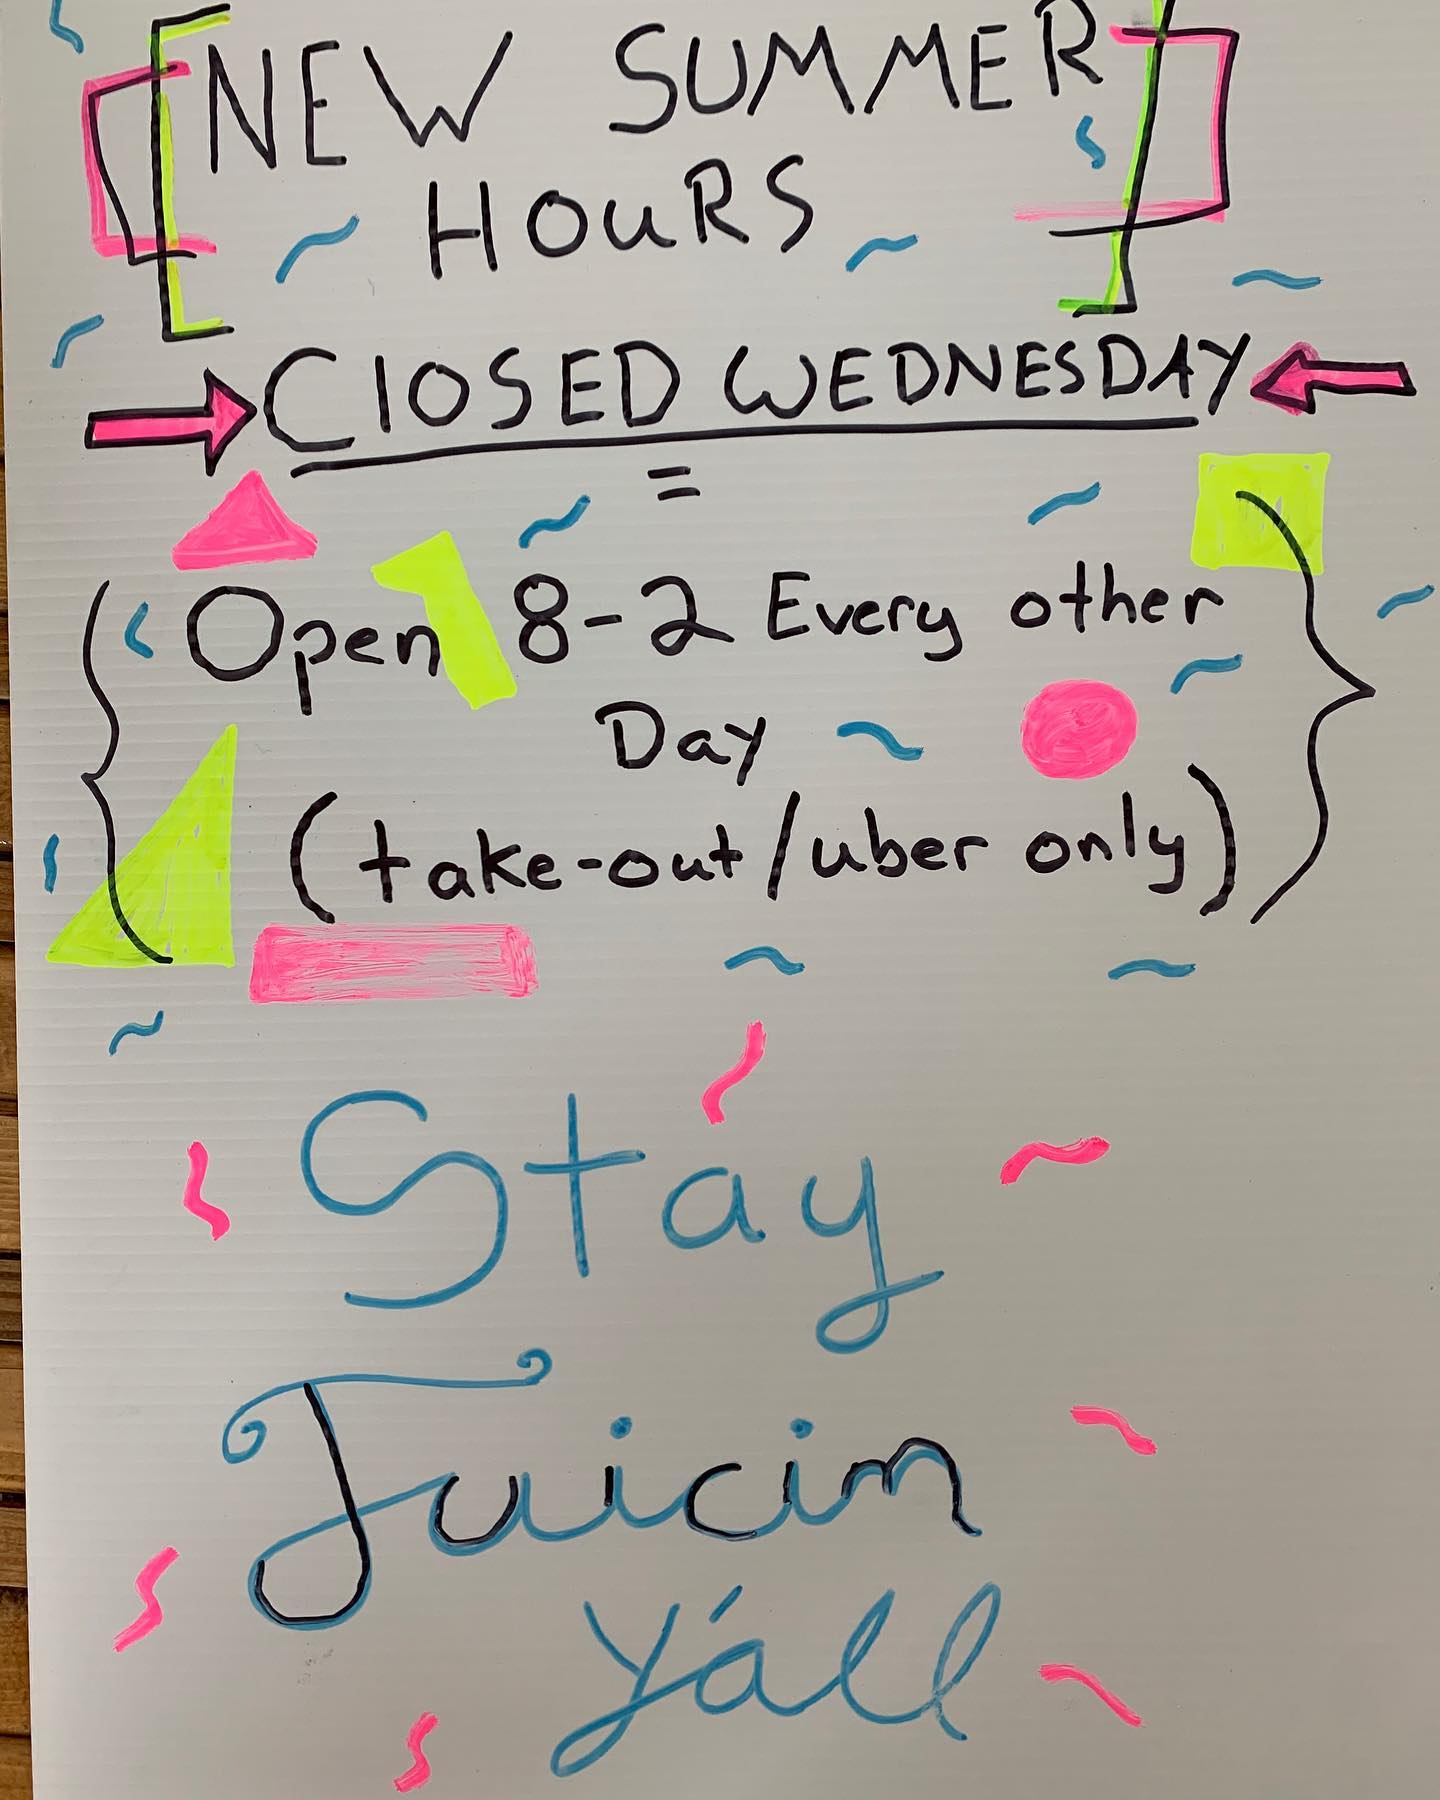 NEW SUMMER
HOURS
ClOSED WEDNESDAY
=
Open 8-2 Every other
Day
(take-out/uber only)
Stay
Juicin
Y'all